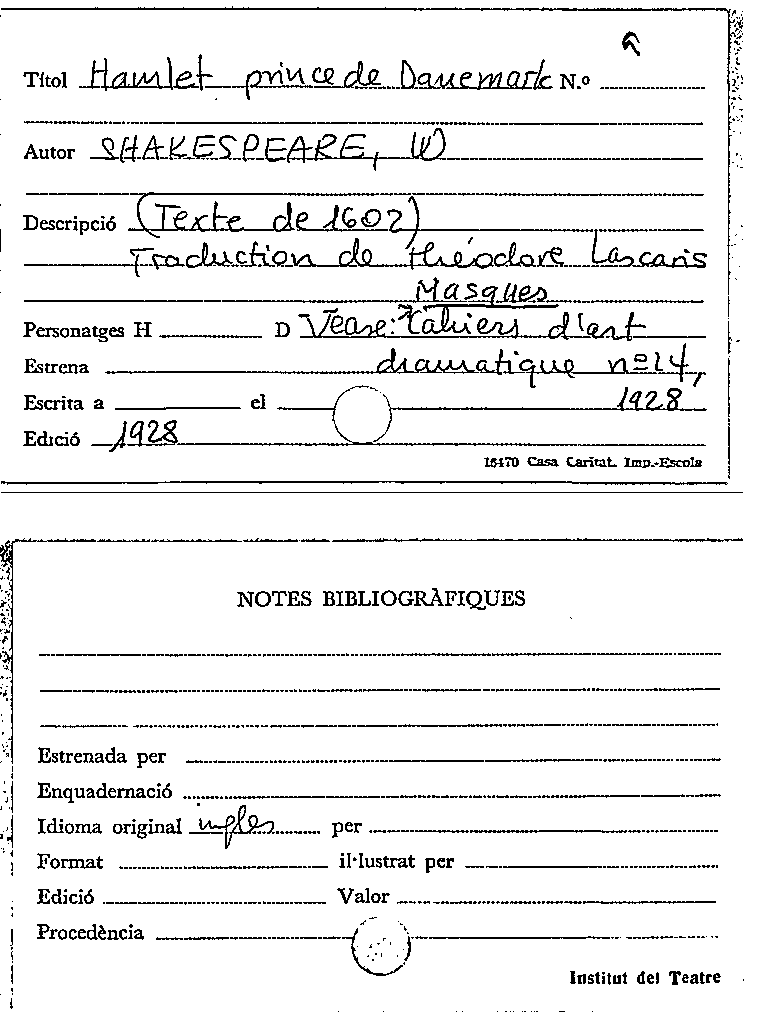 Títol Hamlet prince de Danemark N.º
Autor SHAKESPEARE, W
Descripció (Texte de 1602)
Traduction de Théodore Lascaris
Masques
Personatges H D Vease: Cahiers d'art
Estrena dramatique nº 14,
Escrita a el 1928
Edició 1928
16470 Casa Caritat. Imp.-Escola
NOTES BIBLIOGRÀFIQUES
Estrenada per
Enquadernació
Idioma original ingles per
Format il·lustrat per
Edició Valor
Procedència
Institut del Teatre